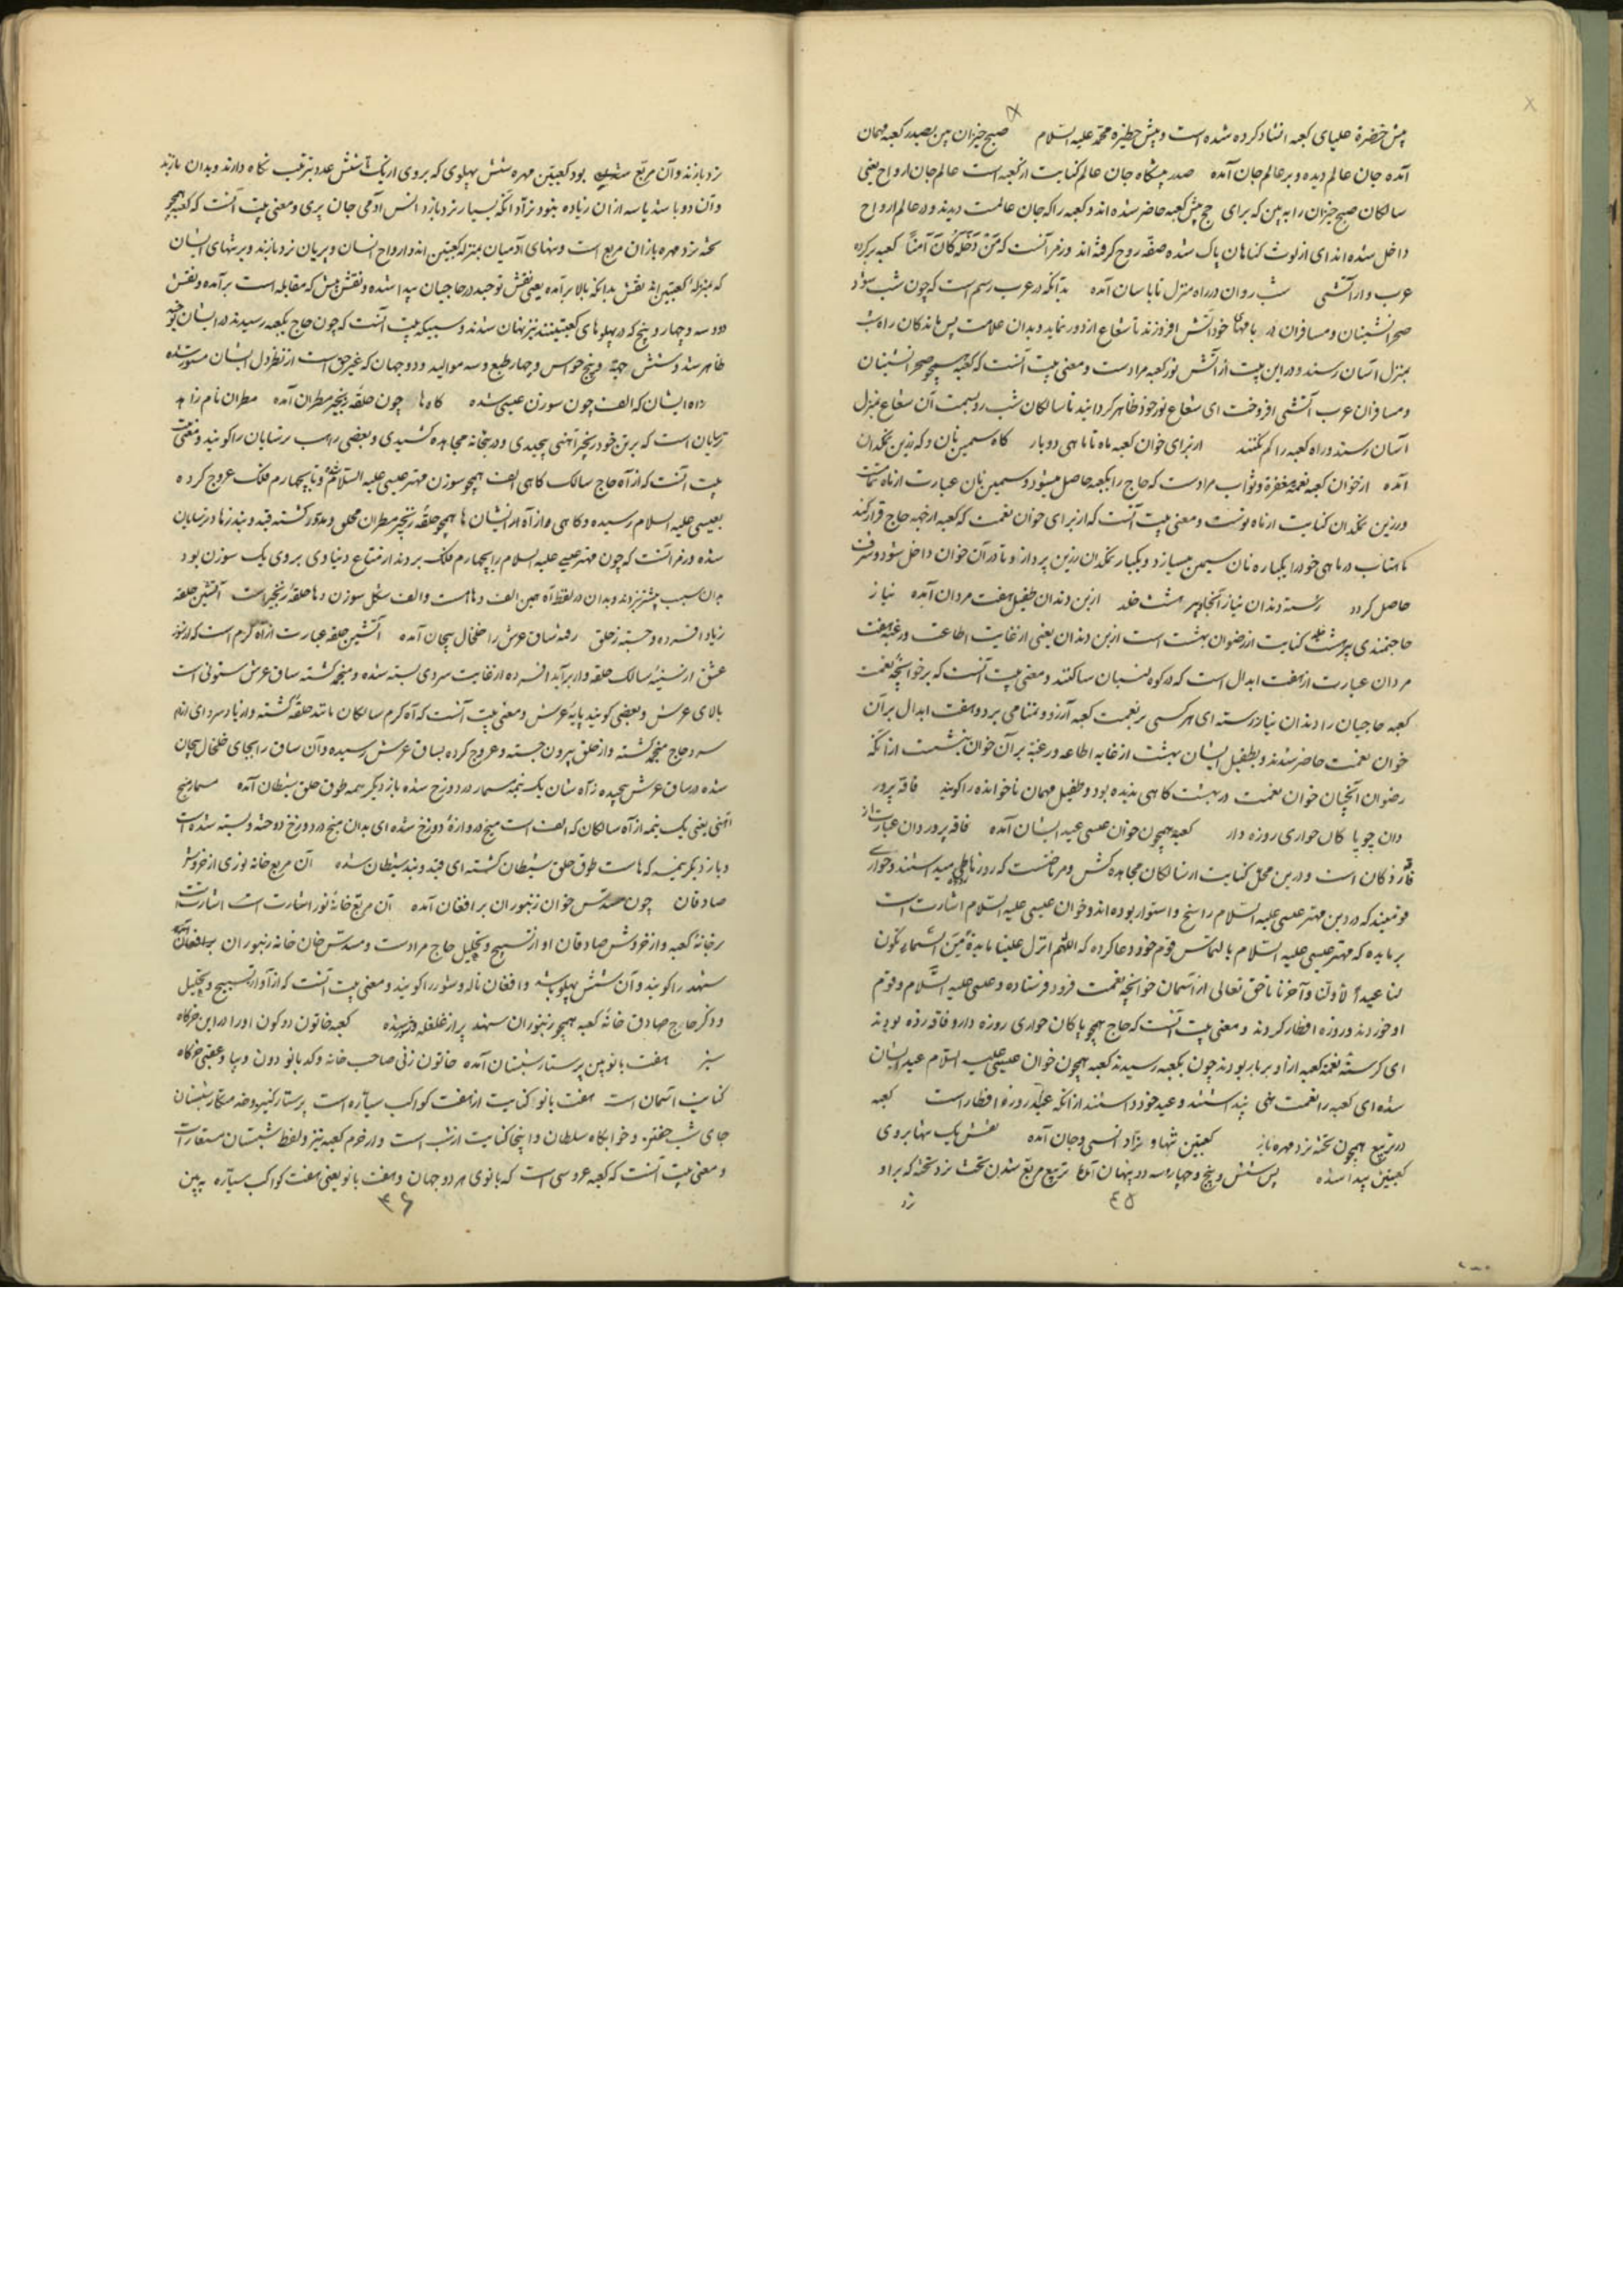 پیش حضرة علیای کعبه انشاد کرده شده است و پیش حظیره محمد علیه السلام صبح خیزان بین بصدر کعبه مهمان
آمده جان عالم دیده و بر عالم جان آمده صدر پیشگاه جان عالم کنایت از کعبه است عالم جان ارواح یعنی
سالکان صبح خیزان را به بین که برای حج پیش کعبه حاضر شده اند و کعبه را که جان عالمست دیدند و در عالم ارواح
داخل شده اند ای از لوث گناهان پاک شده صفه روح گرفته اند و رمز آنست که مَنْ دَخَلَهُ كَانَ آمِنًا کعبه بر کرده
عرب وار آتشی شب روان در راه منزل تابا سان آمده بدانکه در عرب رسم است که چون شب شود
صحرانشینان و مسافران در بامهای خود آتش افروزند تا شعاع از دور نماید و بدان علامت پس ماندگان راه شب
بمنزل آسان رسند و در این بیت از آتش نور کعبه مرادست و معنی بیت آنست که کعبه همچو صحرانشینان
و مسافران عرب آتشی افروخت ای شعاع نور خود ظاهر گردانید تا سالکان شب رو بسمت آن شعاع بمنزل
آسان رسند و راه کعبه را گم نکنند از برای خوان کعبه ماه تا ماهی دو بار گاه سیمین نان و گه زرین نمکدان
آمده از خوان کعبه نغمه مغفرة و ثواب مرادست که حاج را بکعبه حاصل میشود و سیمین نان عبارت از ماه تمامست
و زرین نمکدان کنایت از ماه نوست و معنی بیت آنست که از برای خوان نعمت که کعبه از جهه حاج قرار کند
ماهتاب در ماهی خود را یکباره نان سیمین میسازد و یکبار نمکدان زرین پردازد تا در آن خوان داخل شود و شرف
حاصل گردد رسته دندان نیاز آنجا و پیر هشت خلد از بن دندان طفیل هفت مردان آمده نیاز
حاجتمندی پیر هشت خلد کنایت از رضوان بهشت است از بن دندان یعنی از غایت اطاعت و رغبه هفت
مردان عبارت از هفت ابدال است که در کوه لبنان ساکنند و معنی بیت آنست که بر خوانچهٔ نعمت
کعبه حاجیان را دندان نیاز رسته ای هر کسی بر نعمت کعبه آرزو و تمنا می برد و هفت ابدال بر آن
خوان نعمت حاضر شدند و بطفیل ایشان بهشت از غایه اطاعه و رغبة بر آن خوان بنشست از آنکه
رضوان آنچنان خوان نعمت در بهشت گاهی ندیده بود و طفیل مهمان ناخوانده را گویند فاقه پرور
دان چو پاکان حواری روزه دار کعبه همچون خوان عیسی عید ایشان آمده فاقه پروردان عبارت از
فاقه زدگان است و درین محل کنایت از سالکان مجاهده کش و مرتاضست که روزه میداشتند و حواری
قومیند که در دین مهتر عیسی علیه السلام راسخ و استوار بوده اند و خوان عیسی علیه السلام اشارت است
بر مایده که مهتر عیسی علیه السلام بالتماس قوم خود دعا کرده که اللهم انزل علینا مایدةً مِنَ السَّمَاءِ تکون
لنا عیداً لأولنا و آخرنا تا حق تعالی از آسمان خوانچه نعمت فرود فرستاده و عیسی علیه السلام و قوم
او خوردند و روزه افطار کردند و معنی بیت آنست که حاج همچو پاکان حواری روزه دار و فاقه زده بودند
ای گرسنه نغمه کعبه از او بر بار بودند چون بکعبه رسیدند کعبه همچون خوان عیسی علیه السلام عید ایشان
شده ای کعبه را نعمت پنداشتند و عید خود دانستند از آنکه عید روزه افطار است کعبه
در تربیع همچون تخته نرد مهره باز کعبتین تنها و نراد انسی و جان آمده نقش یک تنها بروی
کعبتین پیدا شده پس شش و پنج و چهار و سه و دو پنهان آمده تربیع مربع شدن تخت نرد تخته که بر او
نرد
٤٥
نرد بازند و آن مربع بود کعبتین مهره شش پهلوی که بروی از یک تا شش عدد بترتیب نگاه دارند و بدان بازند
و آن دو باشد یا سه از آن زیاده بنود نراد آنکه بسیار نرد بازد انس آدمی جان پری و معنی بیت آنست که کعبه همچو
تخته نرد مهره بازان مربع است و تنهای آدمیان بمنزله کعبتین اند و ارواح انسان و پریان نرد بازند و بر تنهای ایشان
که بمنزلهٔ کعبتین اند نقش بالا برآمده یعنی نقش توحید در حاجیان پیدا شده و نقش شش که مقابله است برآمده و نقش
دو و سه و چهار و پنج که در پهلوهای کعبتینند نیز نهان شدند و سبیکه بیت آنست که چون حاج بکعبه رسیدند در ایشان توحید
ظاهر شد و شش جهة و پنج حواس و چهار طبع و سه موالید و دو جهان که غیر حق است از نظر دل ایشان مستور شده
راه ایشان که الف چون سوزن عیسی شده گاه ها چون حلقه زنجیر مطران آمده مطران نام زاهد
ترسایان است که بر تن خود زنجیر آهنی پیچیدی و در بتخانه مجاهده کشیدی و بعضی راهب ترسایان را گویند و معنی
بیت آنست که از آه حاج سالک گاهی الف همچو سوزن مهتر عیسی علیه السلام شده و تا بچهارم فلک عروج کرده
بعیسی علیه السلام رسیده و گاهی و از آه ایشان ها همچو حلقه زنجیر مطران محلق و مدور گشته قید و بند زنها در ترسایان
شده و رمز آنست که چون مهتر عیسی علیه السلام را بچهارم فلک بردند از متاع دنیاوی بر وی یک سوزن بود
بدان سبب پیشتر نرفتند و بدان در لفظ آه حین الف و هاست و الف شکل سوزن و ها حلقهٔ زنجیر است آتشین حلقه
ز باد افسرده و جسته ز حلق رفته ساق عرش را خلخال پیچان آمده آتشین حلقه عبارت از آه گرم است که از سوز
عشق از سینهٔ سالک حلقه وار برآید افسرده از غایت سردی بسته شده و منجمد گشته ساق عرش ستونی است
بالای عرش و بعضی گویند پایهٔ عرش و معنی بیت آنست که آه گرم سالکان مانند حلقه گشته و از باد سرد ای از دم
سرد حاج منجمد گشته و از حلق بیرون جسته و عروج کرده بساق عرش رسیده و آن ساق را بجای خلخال پیچان
شده در ساق عرش پیچیده ز آه شان یک نیمه مسمار در دوزخ شده باز دیگر نیمه طوق حلق شیطان آمده مسمار میخ
آهنی یعنی یک نیمه از آه سالکان که الف است میخ دروازهٔ دوزخ شده ای بدان میخ در دوزخ دوخته و بسته شده است
و باز دیگر نیمه که هاست طوق حلق شیطان گشته ای قید و بند شیطان شده آن مربع خانه نوری از خروش
صادقان چون مسدس خوان زنبوران بر افغان آمده آن مربع خانهٔ نور اشارت است
بر خانهٔ کعبه و از خروش صادقان آواز تسبیح و تهلیل حاج مرادست و مسدس خان خانه زنبوران
شهد را گویند و آن شش پهلو باشد و افغان ناله و شور را گویند و معنی بیت آنست که از آواز تسبیح و تهلیل
و ذکر حاج صادق خانهٔ کعبه همچو زنبوران شهد پر از غلغله و خروش شده کعبه خاتون دو کون او را در این خرگاه
سبز هفت بانو بین پرستار شبستان آمده خاتون زنی صاحب خانه و کدبانو دون دنیا و عقبی خرگاه
کنایت آسمان است هفت بانو کنایت از هفت کواکب سیاره است پرستار کنیز و خدمتکار شبستان
جای شب خفتن و خوابگاه سلطان و اینجا کنایت از شب است و از حرم کعبه نیز و لفظ شبستان مستعار است
و معنی بیت آنست که کعبه عروسی است که بانوی هر دو جهان و هفت بانو یعنی هفت کواکب سیاره به بین
٣٦